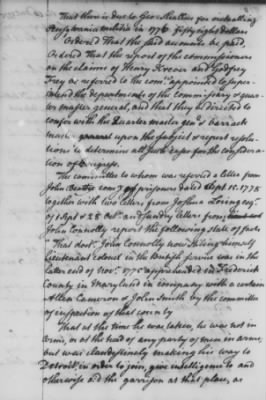 That there is due to Geo: for
militia in 1776 fifty eight dollars
Ordered That the said accounts be paid,
Ordered That the report of the commissioners
on the claims of Henry and Godfrey
Frey be referred to the com^ee appointed to super-
intend the departments of the Commissary & quar-
ter master general, and that they be directed to
confer with the Quarter master gen^l & barrack
mast^r upon the subject & report resolu-
tions to determine all such for the considera-
tion of Congress.
The committee to whom was referred a letter from
John Beatty com^y of prisoners dated Sept. 15. 1778
together with two letters from Joshua Loring esq^r.
of 1 Sept & 28 Oct^r. and sundry letters from
John Connolly report the following state of facts
That doct^r. John Connolly now stiling himself
Lieutenant colonel in the British service was in the
latter end of Nov^r. 1775 apprehended in Frederick
County in Maryland in company with a certain
Allen Cameron & John Smith by the committee
of inspection of that county
That at the time he was taken, he was not in
arms, or at the head of any party of men in arms,
but was clandestinely making his way to
Detroit, in order to join, give intelligence to and
otherwise aid the garrison at that place, as